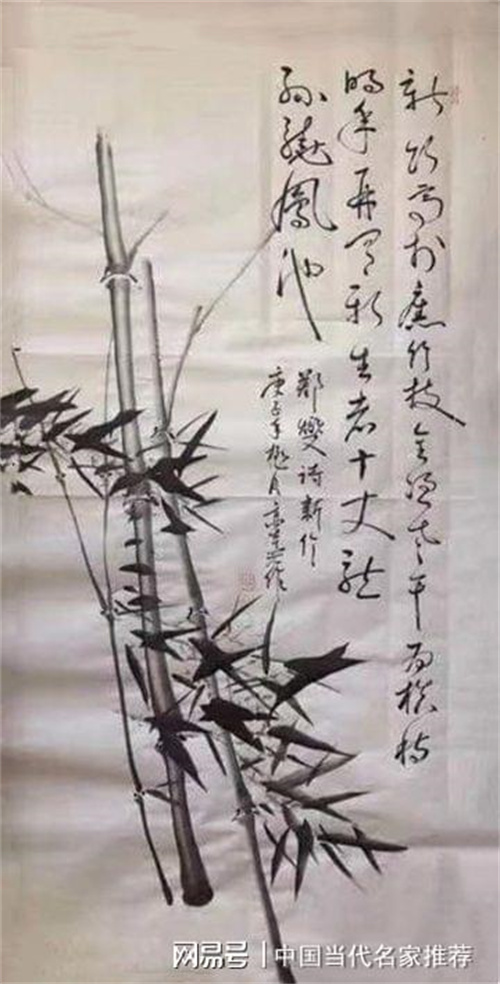 新竹高於舊竹枝全憑老干为扶持
明年再有新生者十丈龙
孙繞鳳池
鄭燮诗新竹
庚子年月作
网易号 | 中国当代名家推荐